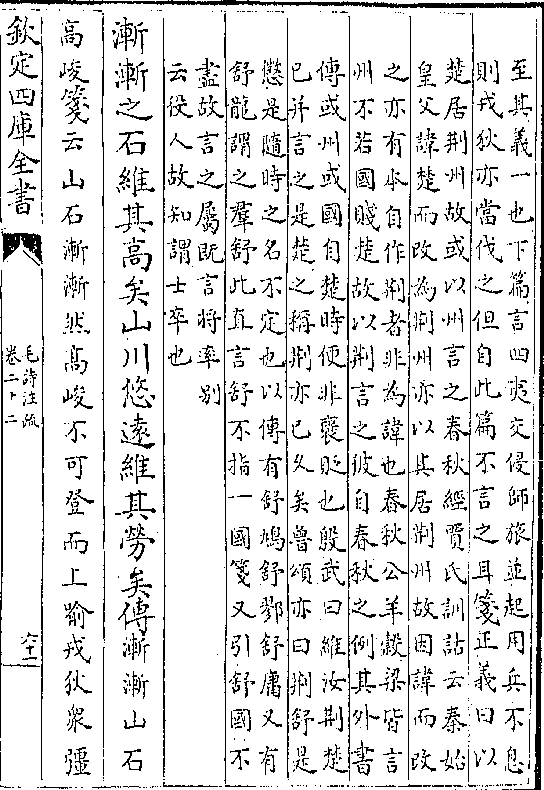 至其義一也下篇言四夷交侵師旅並起用兵不息
則戎狄亦當伐之但自此篇不言之耳箋正義曰以
楚居荆州故或以州言之春秋經賈氏訓詁云秦始
皇父諱楚而改為荆州亦以其居荆州故因諱而改
之亦有本自作荆者非為諱也春秋公羊穀梁皆言
州不若國賤楚故以荆言之彼自春秋之例其外書
傳或州或國自楚時便非褒貶也殷武曰維汝荆楚
已并言之是楚之稱荆亦已久矣魯頌亦曰荆舒是
懲是隨時之名不定也以傳有舒鳩舒鄝舒庸又有
舒龍謂之羣舒此直言舒不指一國箋又引舒國不
盡故言之屬既言將率别
云役人故知謂士卒也
漸漸之石維其高矣山川悠遠維其勞矣傳漸漸山石
高峻箋云山石漸漸然高峻不可登而上喻戎狄衆彊
欽定四庫全書
毛詩注疏
卷二十二
六十二